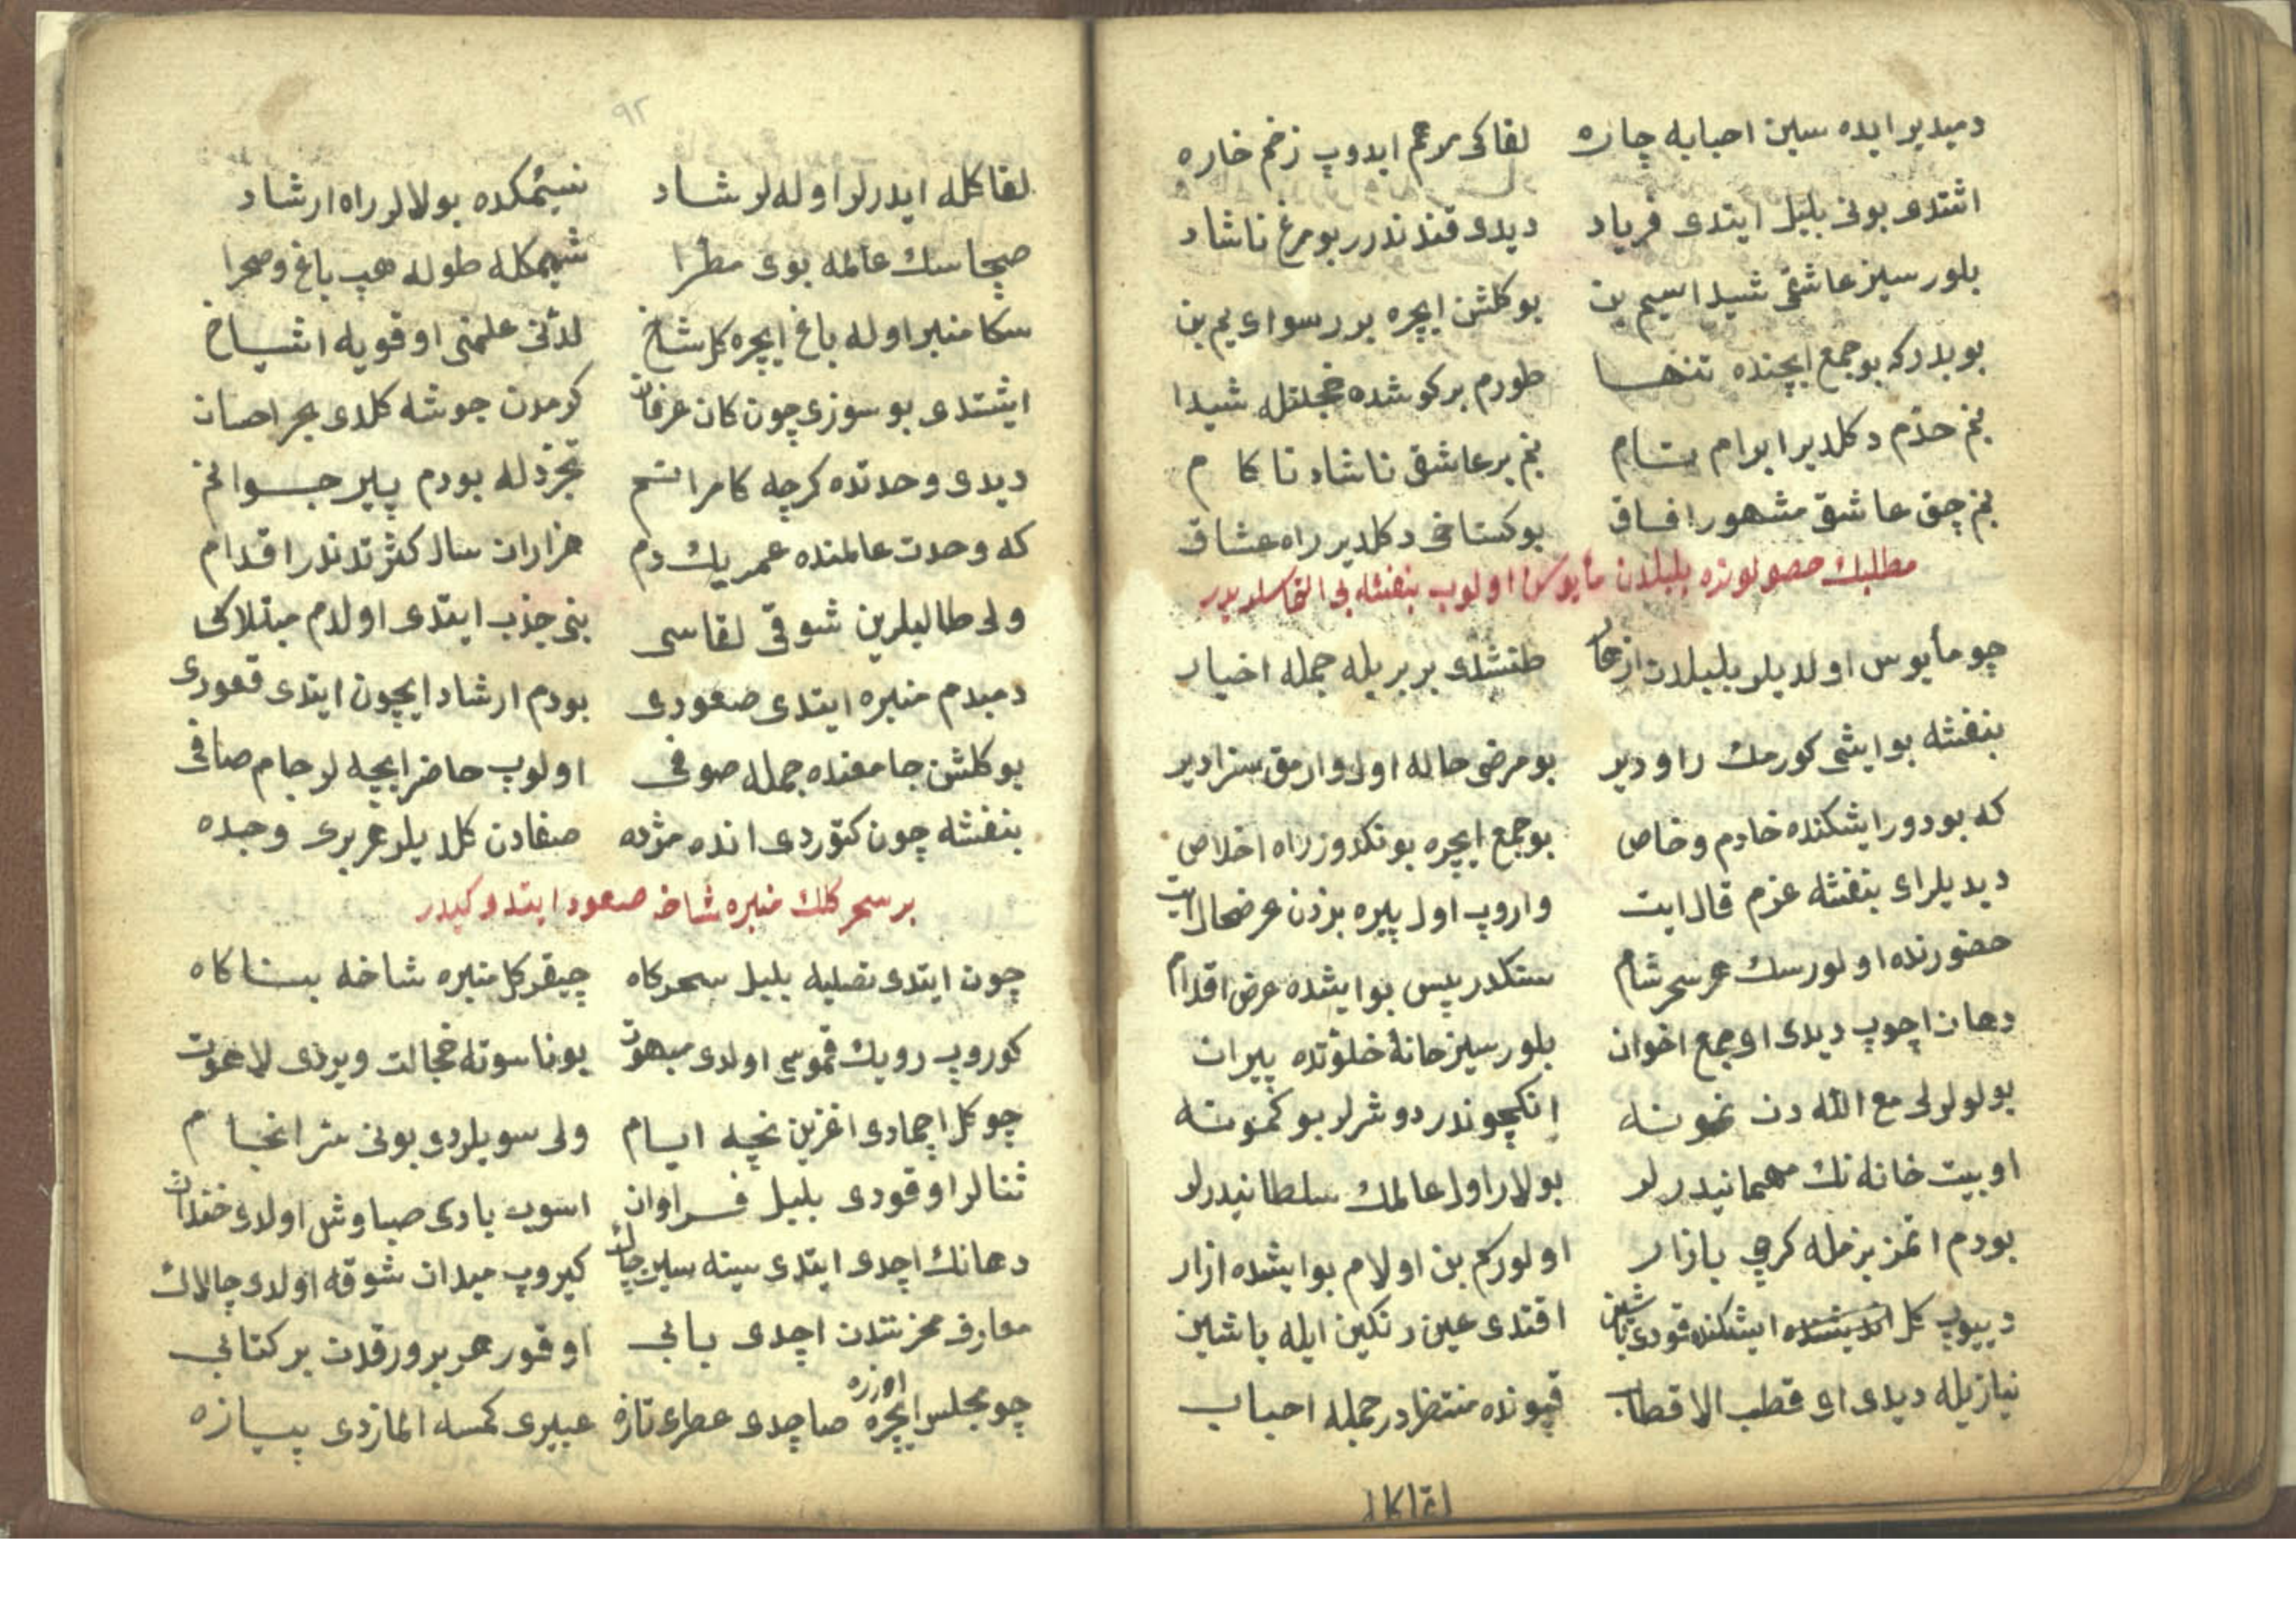 دمیدیر ایده سین احبایه چاره لقاکی مرهم ایدوب زخم خاره
اشتدی بونی بلبل ایتدی فریاد دیدی قندندرر بو مرغ ناشاد
بلورسیز عاشقی شیدا سیم بن بو کلشن ایچره بر رسوای یم بن
بو یدرکه بو جمع ایچنده تنها طورم بر کوشده خجلتله شیدا
بنم حدّم دکلدیر ابرام بتام بنم بر عاشق ناشاد ناکام
بنم چق عاشق مشهور افاق بو کستاخی دکلدیر راه عشاق
مطلبك حصولونده بلبلدن مأیوس اولوب بنفشه یی التماسلریدر
چو مأیوس اولدیلر بلبلدن ازهار طنشدی بر بریله جمله اخیار
بنفشه بو ایشی کورمك راودیر بو مرضی حاله اول وارمق سزادیر
که بودور ایشکنده خادم و خاص بو جمع ایچره بونکدوز راه اخلاص
دیدیلر ای بنفشه عزم قال ایت واروب اول پیره بزدن عرضحال ایت
حضورنده اولورسك هر سحر شام سنکدر پس بو ایشده عرض اقدام
دهان اچوب دیدی او جمع اخوان بلورسیز خانۀ خلوتده پیران
بولولر لی مع الله دن نمونه انکچوندر دوشرلر بو کمونه
او بیت خانه نك مهمانیدرلر بولار اول عالمك سلطانیدرلر
بودم اتمز بزمله کرچی بازار اولورکم بن اولام بو ایشده ازار
دییوب کل ایشکنده قودی باشین اقتدی عین رنکین ایله یاشین
نیازیله دیدی ای قطب الاقطاب قپونده منتظردر جمله احباب
لقاکله
٩٢
لقاکله ایدرلر اوله لر شاد نسیمکده بولالر راه ارشاد
صچاسك عالمه بوی مطرا شمیمکله طوله هپ باغ و صحرا
سکا منبر اوله باغ ایچره کل شاخ لدنّی علمنی اوقویه اشیاخ
ایشتدی بو سوزی چون کان عرفان کرمدن جوشه کلدی بحر احسان
دیدی وحدتده کرچه کامرانم تجرّدله بودم پیر جوانم
که وحدت عالمنده عمر یك دم هزاران سال کثرتدندر اقدام
ولی طالبلرین شوقی لقاسی بنی جذب ایتدی اولدم مبتلاکی
دمیدم منبره ایتدی صعودی بودم ارشاد ایچون ایتدی قعودی
بو کلشن جامعنده جمله صوفی اولوب حاضر ایچه لر جام صافی
بنفشه چون کتوردی انده مژده صفادن کلدیلر هر بری وجده
بر سحر کلك منبره شاخه صعود ایتدوکیدر
چون ایتدی تصلیه بلبل سحرکاه چیقر کل منبره شاخه بناکاه
کوروب رویك قموسی اولدی مبهوت بو ناسوته خجالت ویردی لاهوت
چو کل اچمادی اغزین نچه ایام ولی سویلردی بونی سر انجام
ثنالر اوقودی بلبل فراوان اسوب یادی صباوش اولدی خندان
دهانك اچدی ایتدی سینه سین چاك کیروب میدان شوقه اولدی چالاك
معارف مخزنندن اچدی بابی اوقور هر بر ورقدن بر کتابی
چو مجلس ایچره اوزره صاچدی عطری تازه عبیری کمسه المازدی پیازه